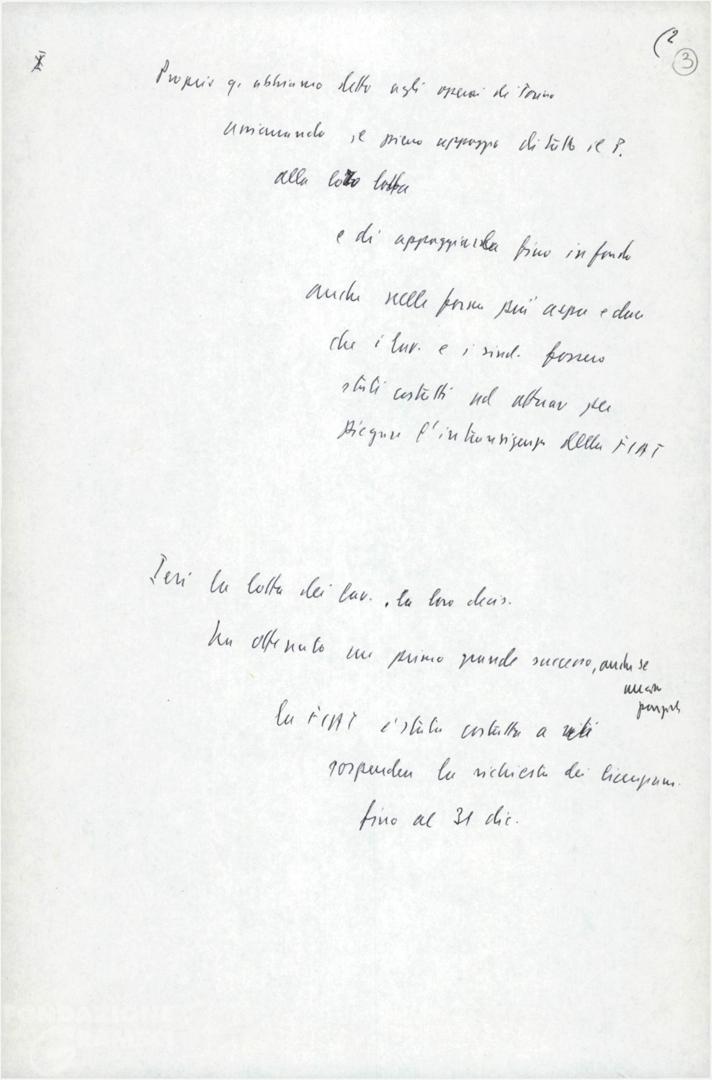 (2
3
I
Proprio q. abbiamo detto agli operai di Torino
assicurando il pieno appoggio di tutto il P.
alla loro lotta
e di appoggiarla fino in fondo
anche nelle forme più aspre e dure
che i lav. e i sind. fossero
stati costretti ad attuare per
piegare l'intransigenza della FIAT
Ieri la lotta dei lav., la loro decis.
ha ottenuto un primo grande successo, anche se
ancora
parziale
la FIAT è stata costretta a
sospendere la richiesta dei licenziam.
fino al 31 dic.
FONDAZIONE